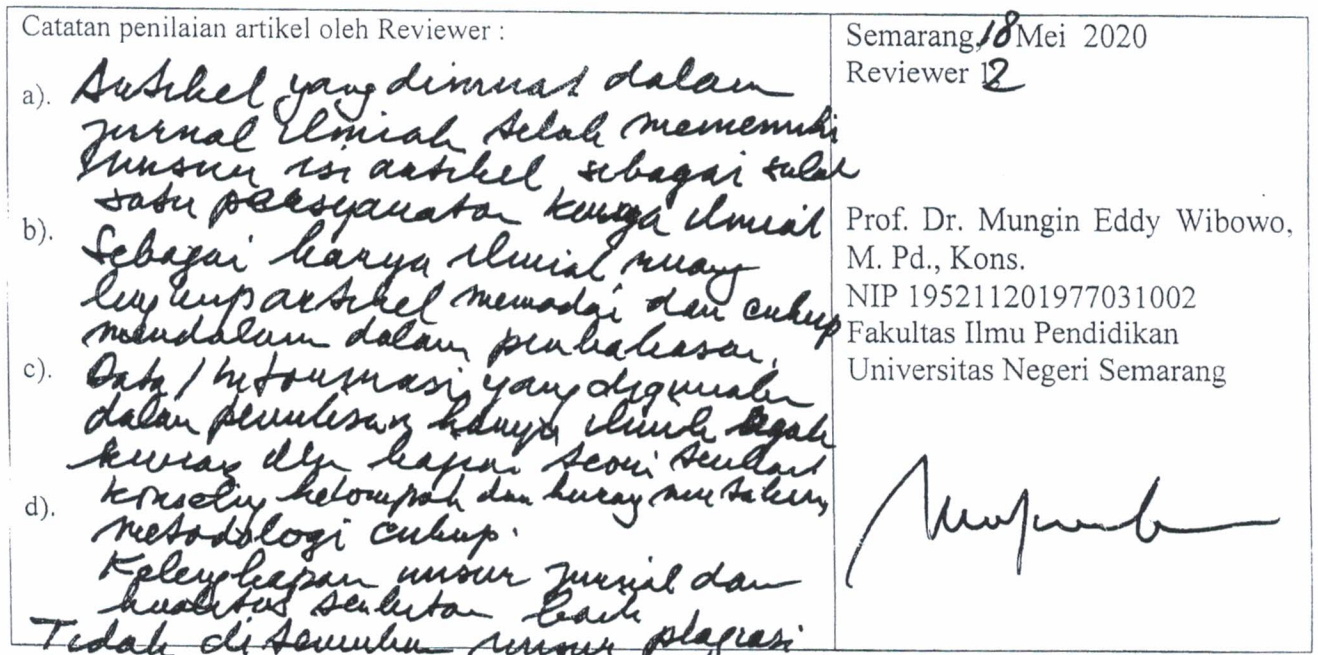 Catatan penilaian artikel oleh Reviewer :
a). Artikel yang dimuat dalam
jurnal ilmiah telah memenuhi
unsur isi artikel sebagai salah
satu persyaratan karya ilmiah
b). Sebagai karya ilmiah ruang
lingkup artikel memadai dan cukup
mendalam dalam pembahasan.
c). Data/Informasi yang digunakan
dalam penulisan karya ilmiah agak
kurang dlm kajian teori tentang
konseling kelompok dan kurang
metodologi cukup.
d). Kelengkapan unsur jurnal dan
kualitas terbitan baik
Tidak ditemukan unsur plagiasi
Semarang, 18 Mei 2020
Reviewer 2
Prof. Dr. Mungin Eddy Wibowo,
M. Pd., Kons.
NIP 195211201977031002
Fakultas Ilmu Pendidikan
Universitas Negeri Semarang